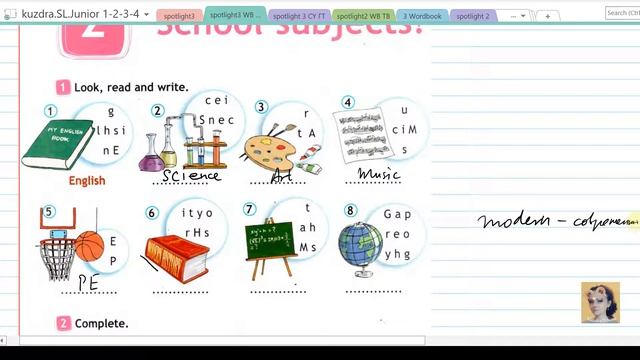 kuzdra.SL.Junior 1-2-3-4
spotlight3
spotlight3 WB ...
spotlight 3 CY ГТ
spotlight2 WB TB
3 Workbook
spotlight 2
Search (Ctrl
2
School subjects!
1 Look, read and write.
1
MY ENGLISH
BOOK
g
lhsi
nE
English
2
cei
Snec
Science
3
r
tA
Art
4
u
ciM
s
Music
5
E
P
PE
6
ityo
rHs
7
t
ah
Ms
8
Gap
reo
yhg
modern –
2 Complete.